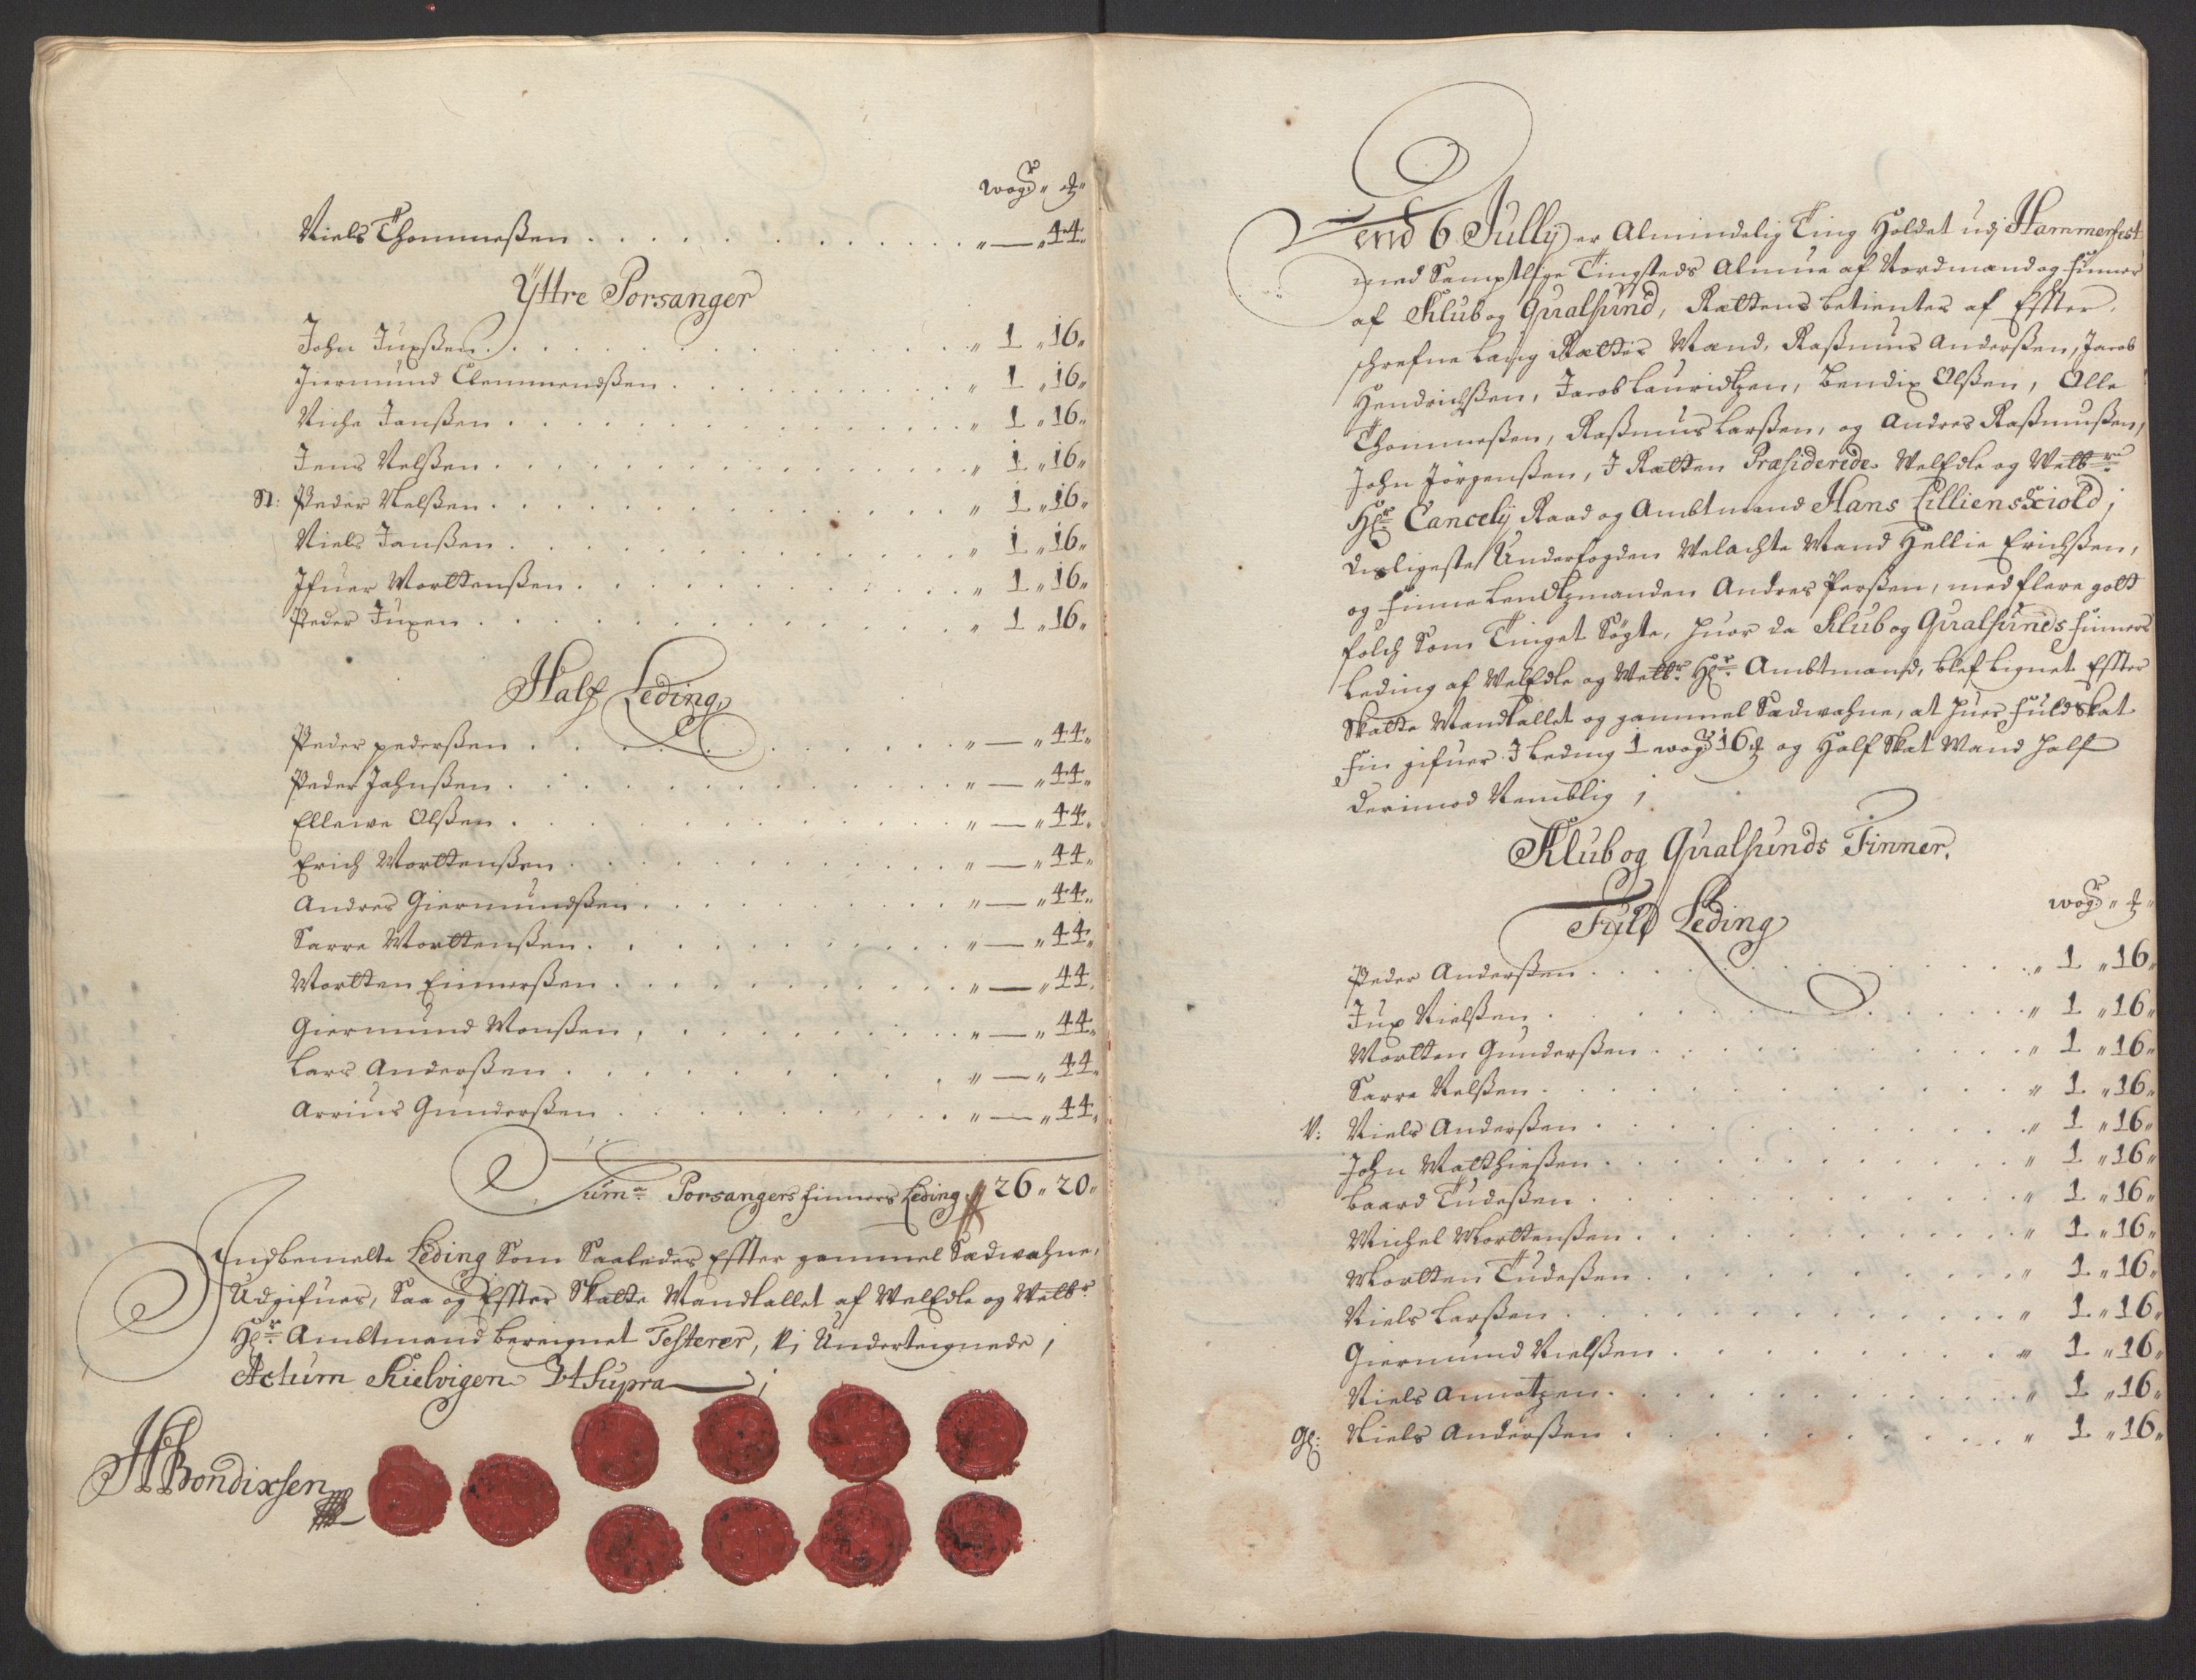 wogr " ℔ "
Niels Thommeßen . . . . . . . . " — " 44 "
Yttre Porsanger
John Juxßen . . . . . . . . " 1 " 16 "
Jiermund Clemmendßen . . . . . . . . " 1 " 16 "
Niche Janßen . . . . . . . . " 1 " 16 "
Jens Nelßen . . . . . . . . " 1 " 16 "
St: Peder Nelßen . . . . . . . . " 1 " 16 "
Niels Janßen . . . . . . . . " 1 " 16 "
Ifuer Morttenßen . . . . . . . . " 1 " 16 "
Peder Juxen . . . . . . . . " 1 " 16 "
Half Leding
Peder pederßen . . . . . . . . " — " 44 "
Peder Jahnßen . . . . . . . . " — " 44 "
Ellewe Olßen . . . . . . . . " — " 44 "
Erich Morttenßen . . . . . . . . " — " 44 "
Andres Giermundßen . . . . . . . . " — " 44 "
Sarre Morttenßen . . . . . . . . " — " 44 "
Mortten Einnerßen . . . . . . . . " — " 44 "
Giermund Monßen . . . . . . . . " — " 44 "
Lars Anderßen . . . . . . . . " — " 44 "
Arrius Gunderßen . . . . . . . . " — " 44 "
Suma Porsangers finners Leding 26 " 20 "
Indbemelte Leding Som Saaledes Effter gammel Sædwahne,
Udgifues, Saa og Effter Skatte Mandtallet af WelEdle og Welbr
Hr Ambtmand bereignet Testerer, Vi Underteignede ;
Actum Kielvigen Ut Supra ;
HBondixsen
Dend 6 Jully er Almindelig Ting Holdet udj Hammerfest
med Samptlige Tingsteds Almue af Nordmand og finner
af Klub og Qualsund, Rættens betientes af Effter,
schrefne Laug Rættis Mænd, Raßmus Anderßen, Jacob
Hendrichßen, Jacob Lauridtzen, Bendix Olßen, Olle
Thommeßen, Raßmus Larßen, og Andres Raßmußen,
John Jörgenßen, J Rætten Præsiderede WelEdle og Welbrne
Hr Cancelij Raad og Ambtmand Hans Lillienskiold ;
disligeste Underfogden Welachte Mand Hellie Erichßen,
og finne Lendtzmanden Andres Perßen, med flere gott
folch Som Tinget Sögte, huor da Klub og Qualsunds finners
Leding af WelEdle og Welbr Hr Ambtmand, blef Lignet Effter
Skatte Mandtallet og gammel Sædwahne, at huer fuld Skat
fin gifuer J Leding 1 wogr 16 ℔ og Half Skat Mand half
derimod Nemblig ;
Klub og Qualsunds Finner.
Fuld Leding
wogr " ℔ "
Peder Anderßen . . . . . . . . " 1 " 16 "
Jux Nielßen . . . . . . . . " 1 " 16 "
Mortten Gunderßen . . . . . . . . " 1 " 16 "
Sarre Nelßen . . . . . . . . " 1 " 16 "
V: Niels Anderßen . . . . . . . . " 1 " 16 "
John Matthießen . . . . . . . . " 1 " 16 "
Baard Tudeßen . . . . . . . . " 1 " 16 "
Michel Morttenßen . . . . . . . . " 1 " 16 "
Mortten Tudeßen . . . . . . . . " 1 " 16 "
Niels Larßen . . . . . . . . " 1 " 16 "
Giermund Nielßen . . . . . . . . " 1 " 16 "
Niels Annatzen . . . . . . . . " 1 " 16 "
Gl: Niels Anderßen . . . . . . . . " 1 " 16 "